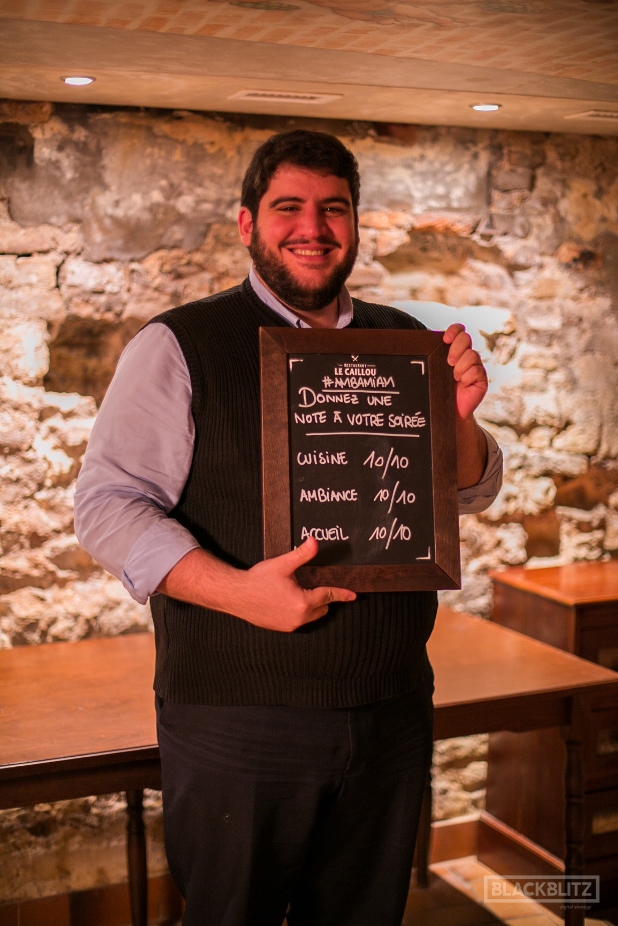 RESTAURANT
LE CAILLOU
#MBAMIAM
DONNEZ UNE
NOTE À VOTRE SOIRÉE
CUISINE 10/10
AMBIANCE 10/10
ACCUEIL 10/10
BLACKBLITZ